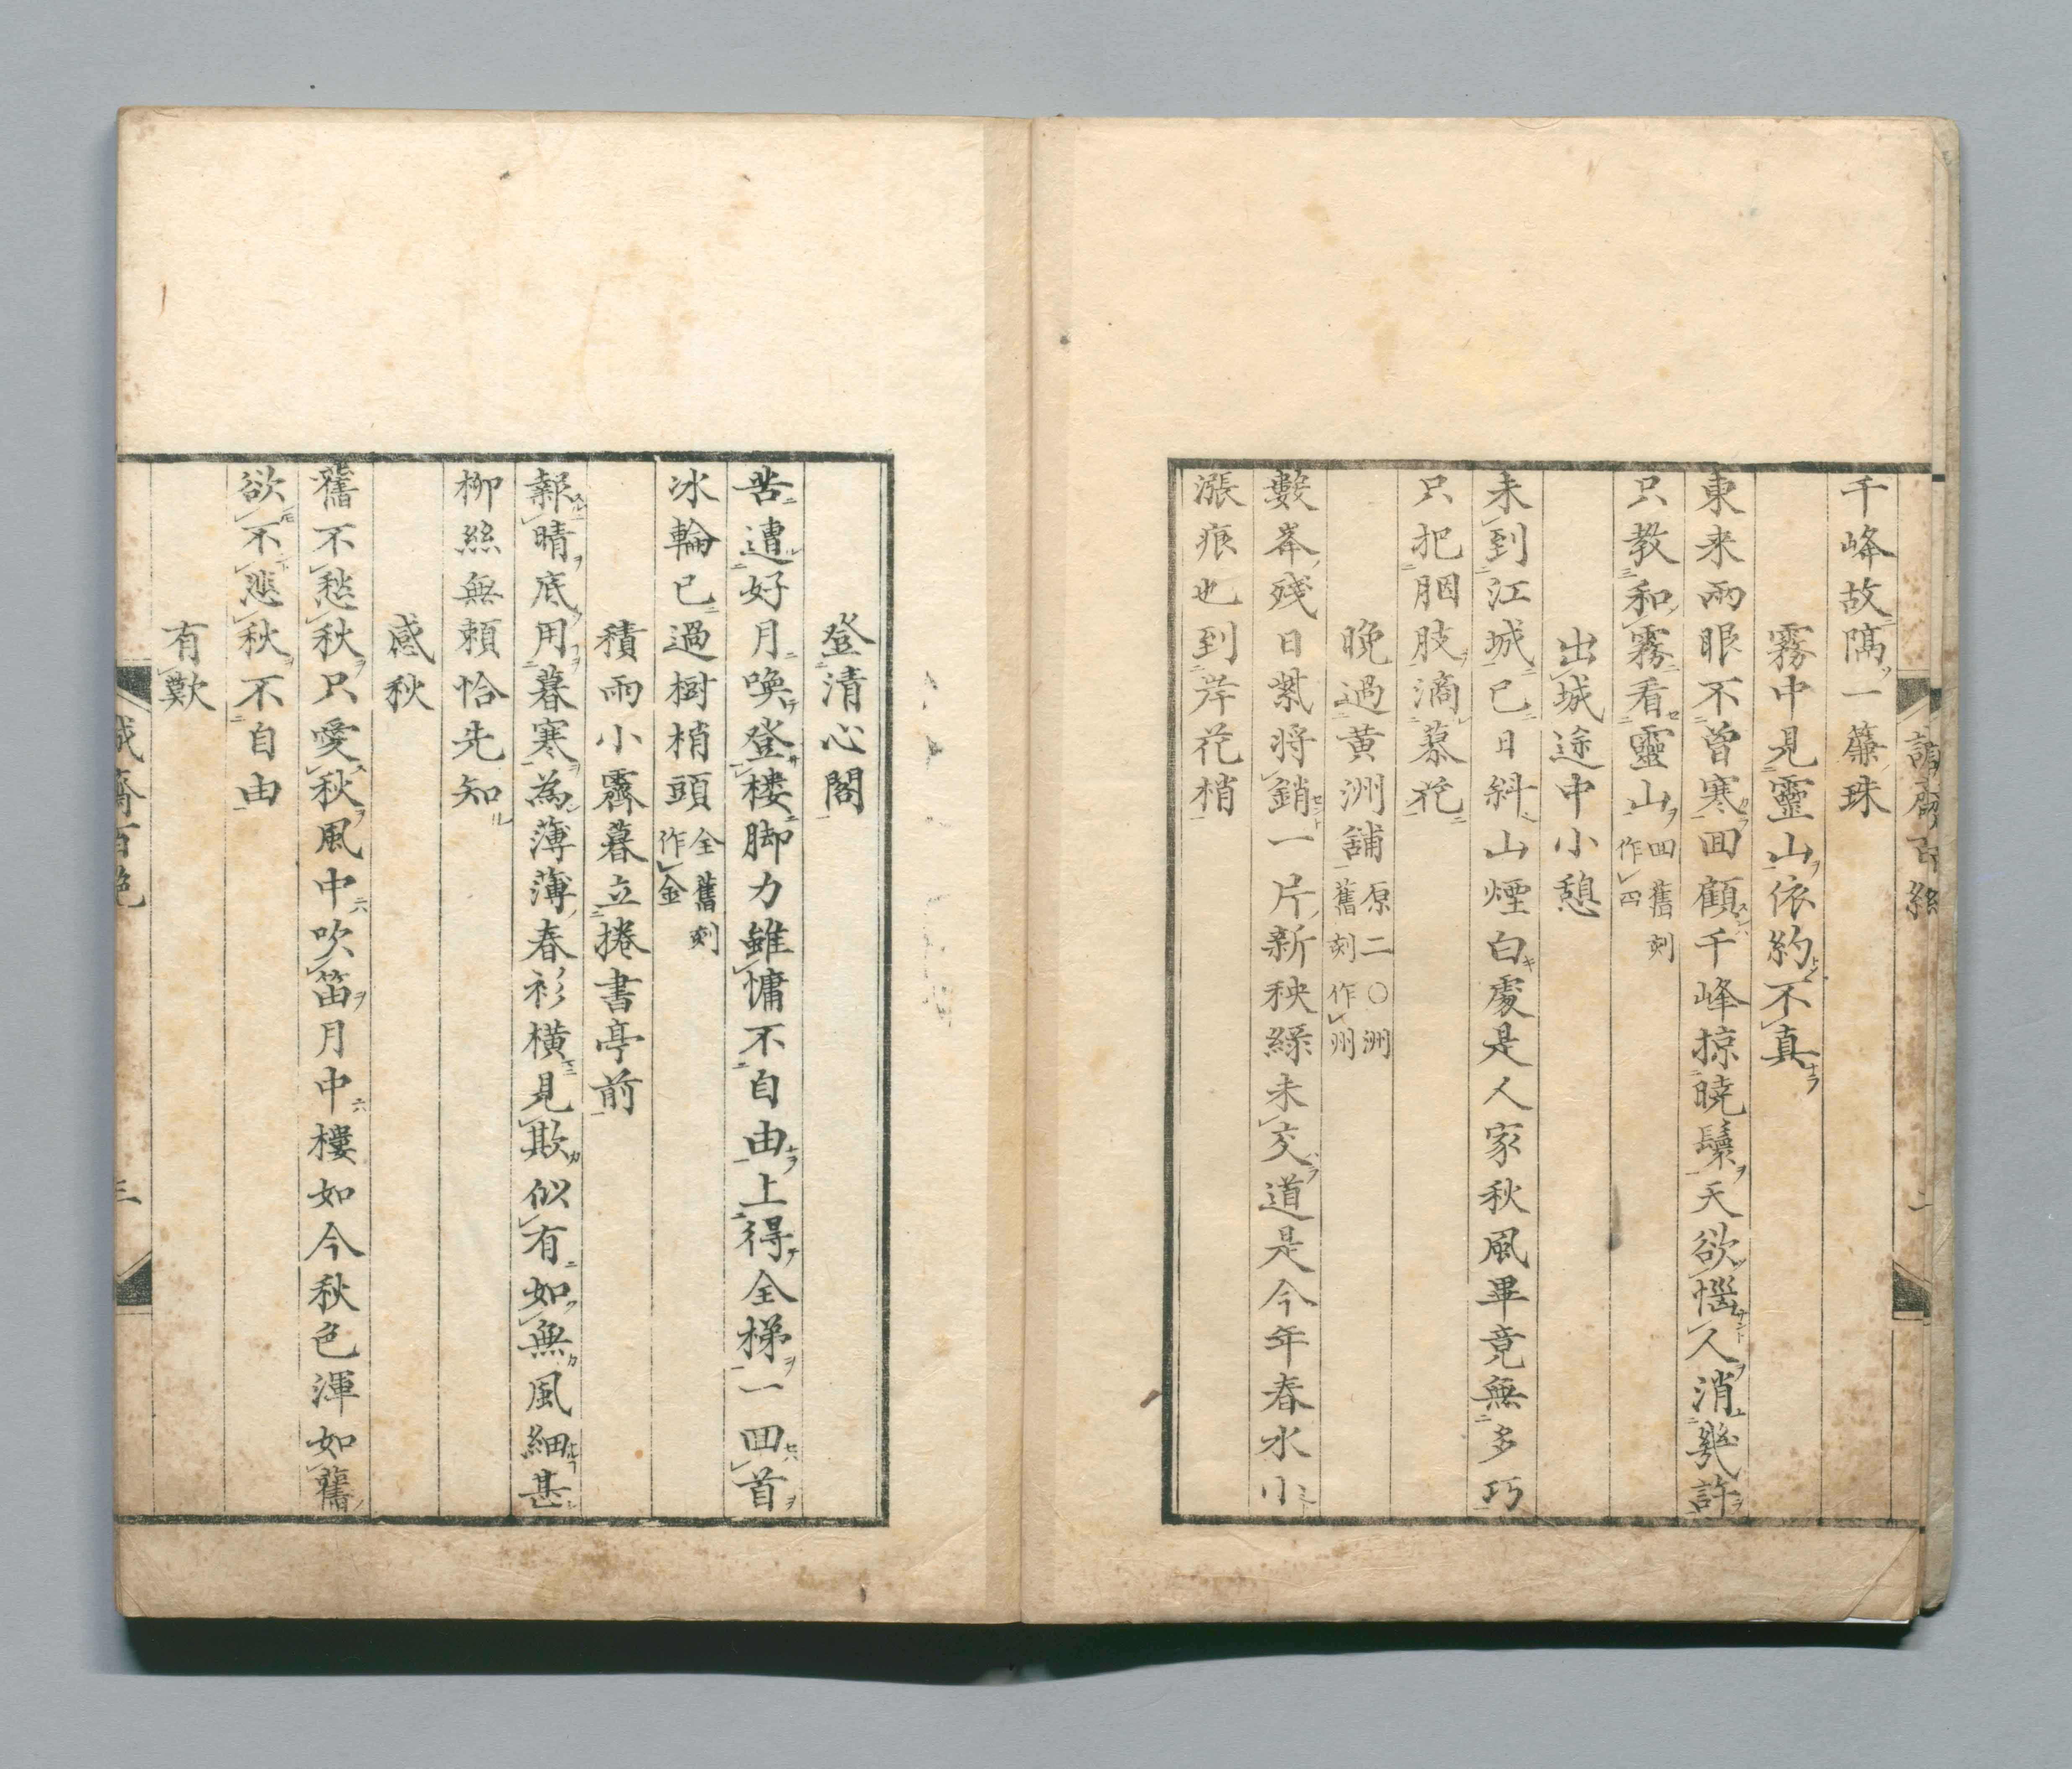 千峰故隔一簾珠
霧中見靈山依約不真
東来兩眼不曽寒囬顧千峰掠暁鬟天欲惱人消幾許
只教和霧看靈山囬舊刻作四
出城途中小憩
未到江城已日斜山煙白處是人家秋風畢竟無多巧
只把胭肢滴慕花
晩過黄洲舗原二〇洲舊刻作州
數峯殘日紫将銷一片新秧緑未交道是今年春水小
漲痕也到岸花梢
登清心閣
苦遭好月喚登楼脚力雖慵不自由上得全梯一囬首
冰輪已過樹梢頭全舊刻作金
積雨小霽暮立捲書亭前
報晴底用暮寒為薄薄春衫横見欺似有如無風細甚
柳絲無頼恰先知
感秋
舊不愁秋只愛秋風中吹笛月中樓如今秋色渾如舊
欲不悲秋不自由
有歎
誠齋百絶
三